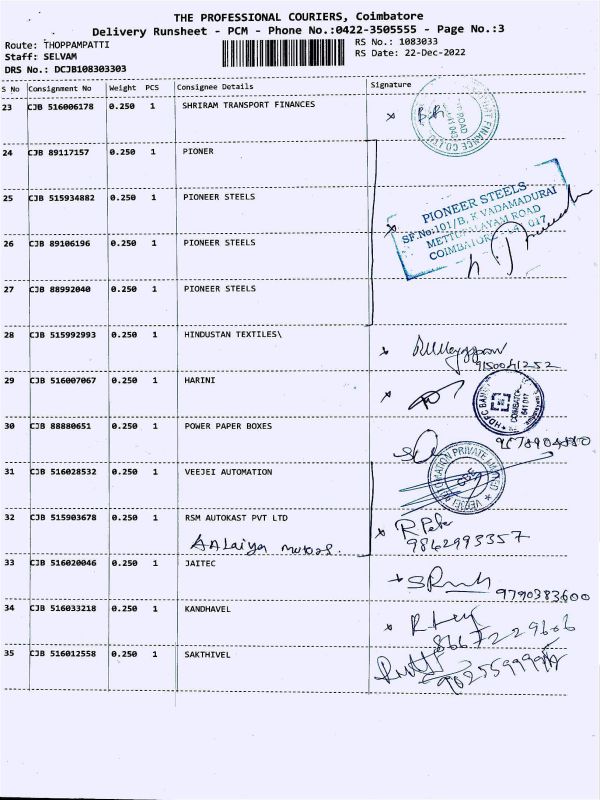 THE PROFESSIONAL COURIERS, Coimbatore
Delivery Runsheet - PCM - Phone No.:0422-3505555 - Page No.:3
Route: THOPPAMPATTI RS No.: 1083033
Staff: SELVAM RS Date: 22-Dec-2022
DRS No.: DCJB108303303
S No Consignment No Weight PCS Consignee Details Signature
23 CJB 516006178 0.250 1 SHRIRAM TRANSPORT FINANCES
24 CJB 89117157 0.250 1 PIONER
25 CJB 515934882 0.250 1 PIONEER STEELS
PIONEER STEELS
SF.No:101/B, K VADAMADURAI
METTUPALAYAM ROAD
COIMBATORE 017
26 CJB 89106196 0.250 1 PIONEER STEELS
27 CJB 88992040 0.250 1 PIONEER STEELS
28 CJB 515992993 0.250 1 HINDUSTAN TEXTILES\
9150041252
29 CJB 516007067 0.250 1 HARINI
HDFC BANK
COIMBATORE
641 017
30 CJB 88880651 0.250 1 POWER PAPER BOXES
31 CJB 516028532 0.250 1 VEEJEI AUTOMATION
VEEJEI AUTOMATION PRIVATE LIMITED
32 CJB 515903678 0.250 1 RSM AUTOKAST PVT LTD
9842993357
33 CJB 516020046 0.250 1 JAITEC
9790383600
34 CJB 516033218 0.250 1 KANDHAVEL
35 CJB 516012558 0.250 1 SAKTHIVEL